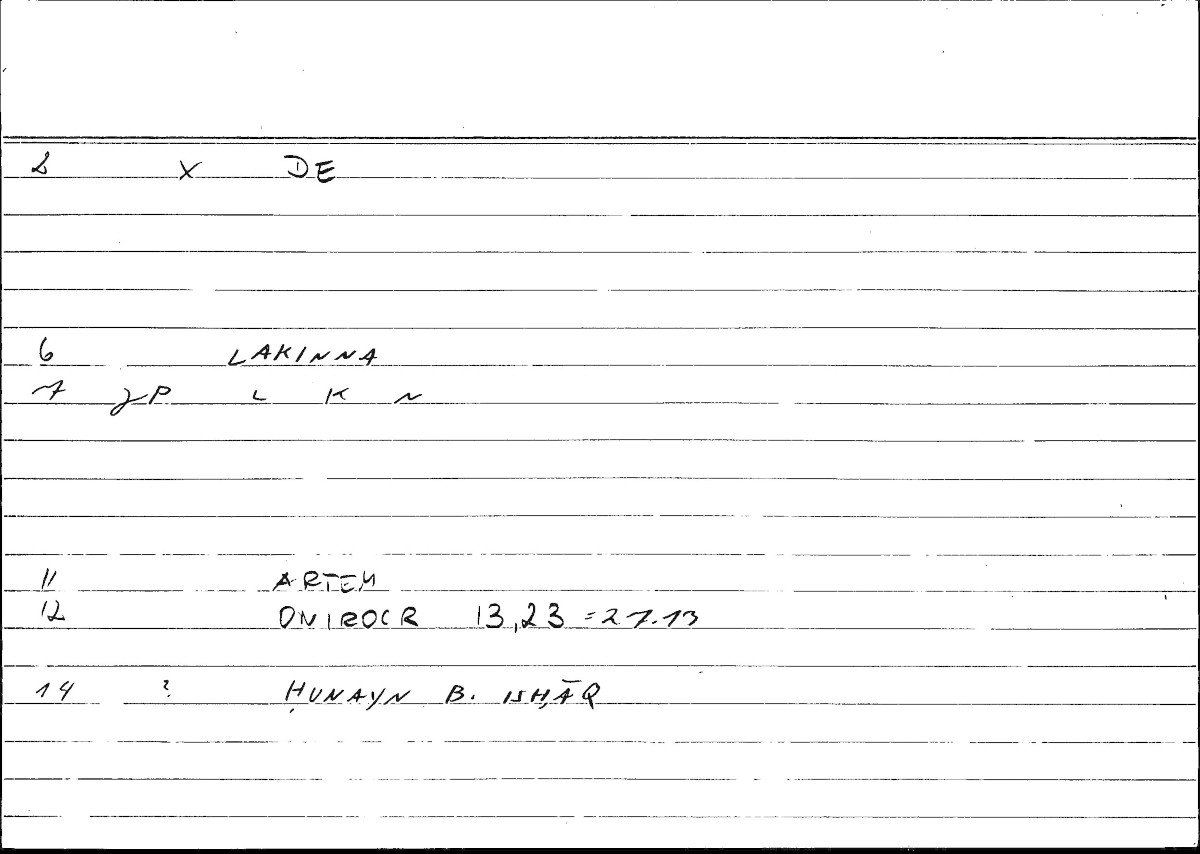 2 X DE
6 LAKINNA
7 JP L K N
11 ARTEM
12 ONIROCR 13,23 = 27.13
14 ? ḤUNAYN B. ISḤĀQ